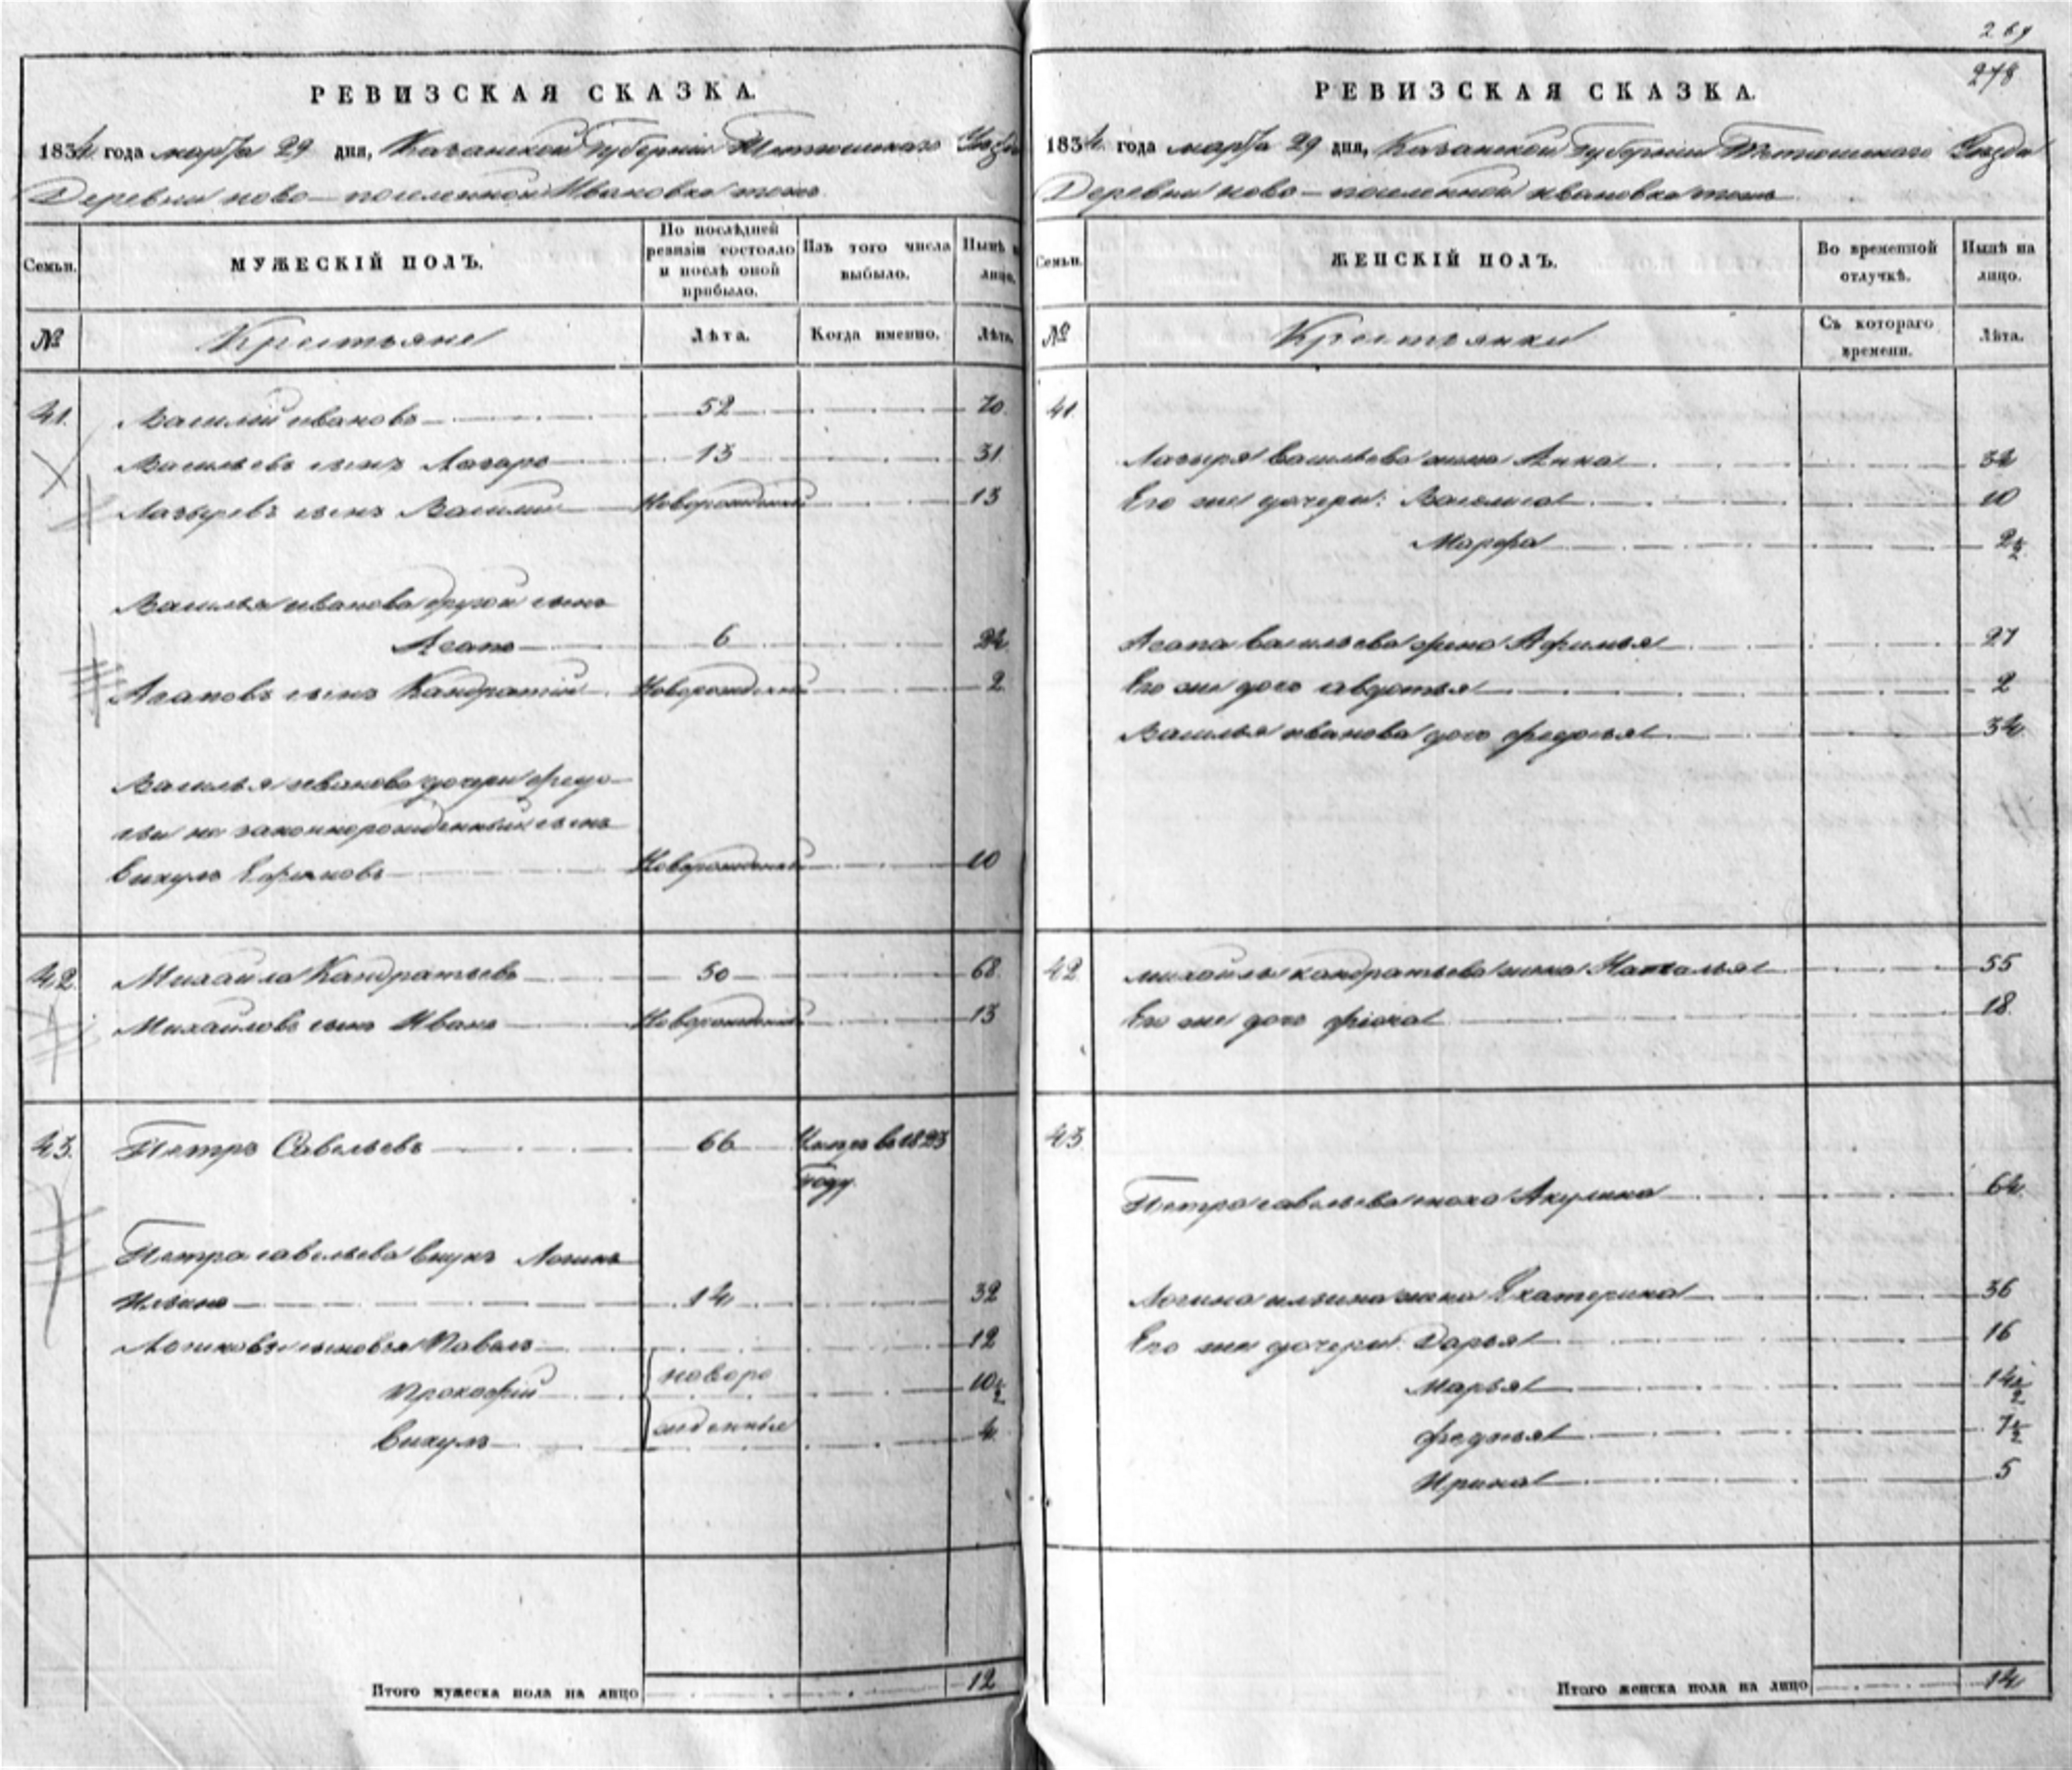 РЕВИЗСКАЯ СКАЗКА.
1834 года марта 29 дня, Казанской Губернии Тетюшскаго Уезда
Деревни ново-поселенной Ивановка тожъ
Семьи. МУЖЕСКІЙ ПОЛЪ. По послѣдней ревизіи состояло и послѣ оной прибыло. Изъ того числа выбыло. Нынѣ на лицо.
№ Крестьяне Лѣта. Когда именно. Лѣта.
41. Василий ивановъ 52 70.
Васильевъ сынъ Лазарь 13 31
Лазыревъ сынъ Василий Новорожденный 13
Василья иванова другой сынъ
Агапъ 6 24.
Агаповъ сынъ Кандратий Новорожденный 2
Василья иванова дочери Федо-
сьи не законнорожденный сынъ
Викулъ Ефимовъ Новорожденный 10
42. Михаила Кандратьевъ 50 68.
Михайловъ сынъ Иванъ Новорожденный 13
43. Петръ Савельевъ 66 Умеръ в 1823
году.
Петра савельева внукъ Логинъ
Ильинъ 14 32
Логиновы сыновья Павелъ 12
Прокофий новоро 10½
Викулъ жденныя 4.
Итого мужеска пола на лицо 12
269
278
РЕВИЗСКАЯ СКАЗКА.
1834. года марта 29 дня, Казанской Губернии Тетюшскаго Уезда
Деревни ново-поселенной ивановка тожъ
Семьи. ЖЕНСКІЙ ПОЛЪ. Во временной отлучкѣ. Нынѣ на лицо.
№ Крестьянки Съ котораго времени. Лѣта.
41.
Лазыря васильева жена Анна 34
Его же дочери: Василиса 10
Марфа 2½
Агапа васильева жена Афимья 27
Его же дочь авдотья 2
Василья иванова дочь федосья 34
42. михайлы кандратьева жена Наталья 55
Его же дочь фіокла 18.
43.
Петра савельева сноха Акулина 64.
Логина ильина жена Екатерина 36
Его же дочери: Дарья 16
Марья 14½
федосья 7½
Ирина 5
Итого женска пола на лицо 14